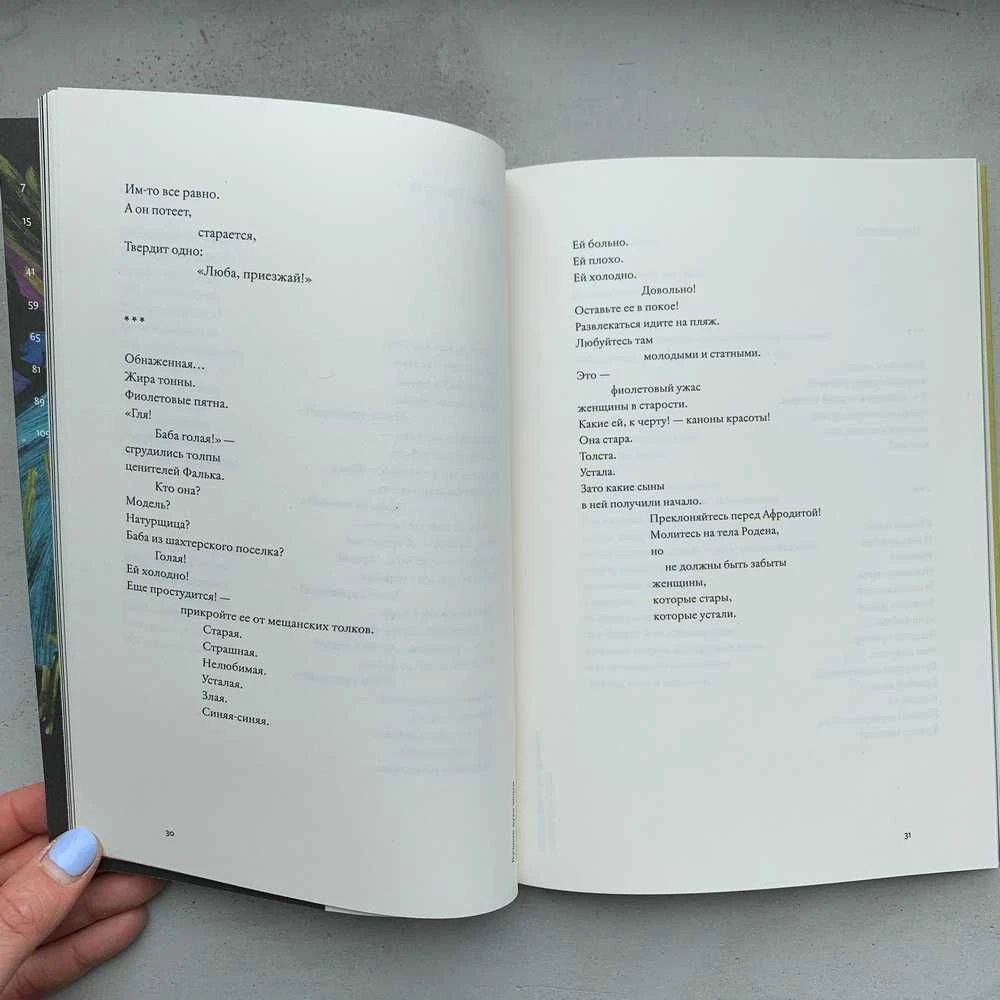 7
15
41
59
65
81
89
109
Им-то все равно.
А он потеет,
старается,
Твердит одно:
«Люба, приезжай!»
***
Обнаженная…
Жира тонны.
Фиолетовые пятна.
«Гля!
Баба голая!» —
сгрудились толпы
ценителей Фалька.
Кто она?
Модель?
Натурщица?
Баба из шахтерского поселка?
Голая!
Ей холодно!
Еще простудится! —
прикройте ее от мещанских толков.
Старая.
Страшная.
Нелюбимая.
Усталая.
Злая.
Синяя-синяя.
30
Ей больно.
Ей плохо.
Ей холодно.
Довольно!
Оставьте ее в покое!
Развлекаться идите на пляж.
Любуйтесь там
молодыми и статными.
Это —
фиолетовый ужас
женщины в старости.
Какие ей, к черту! — каноны красоты!
Она стара.
Толста.
Устала.
Зато какие сыны
в ней получили начало.
Преклоняйтесь перед Афродитой!
Молитесь на тела Родена,
но
не должны быть забыты
женщины,
которые стары,
которые устали.
31